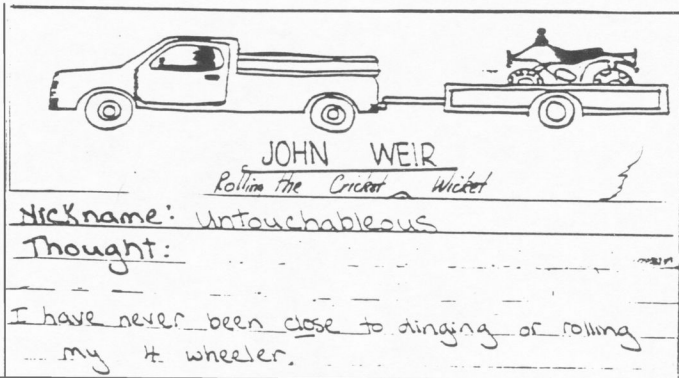 JOHN WEIR
Rolling the Cricket Wicket
Nickname: Untouchableous
Thought:
I have never been close to dinging or rolling
my 4 wheeler.